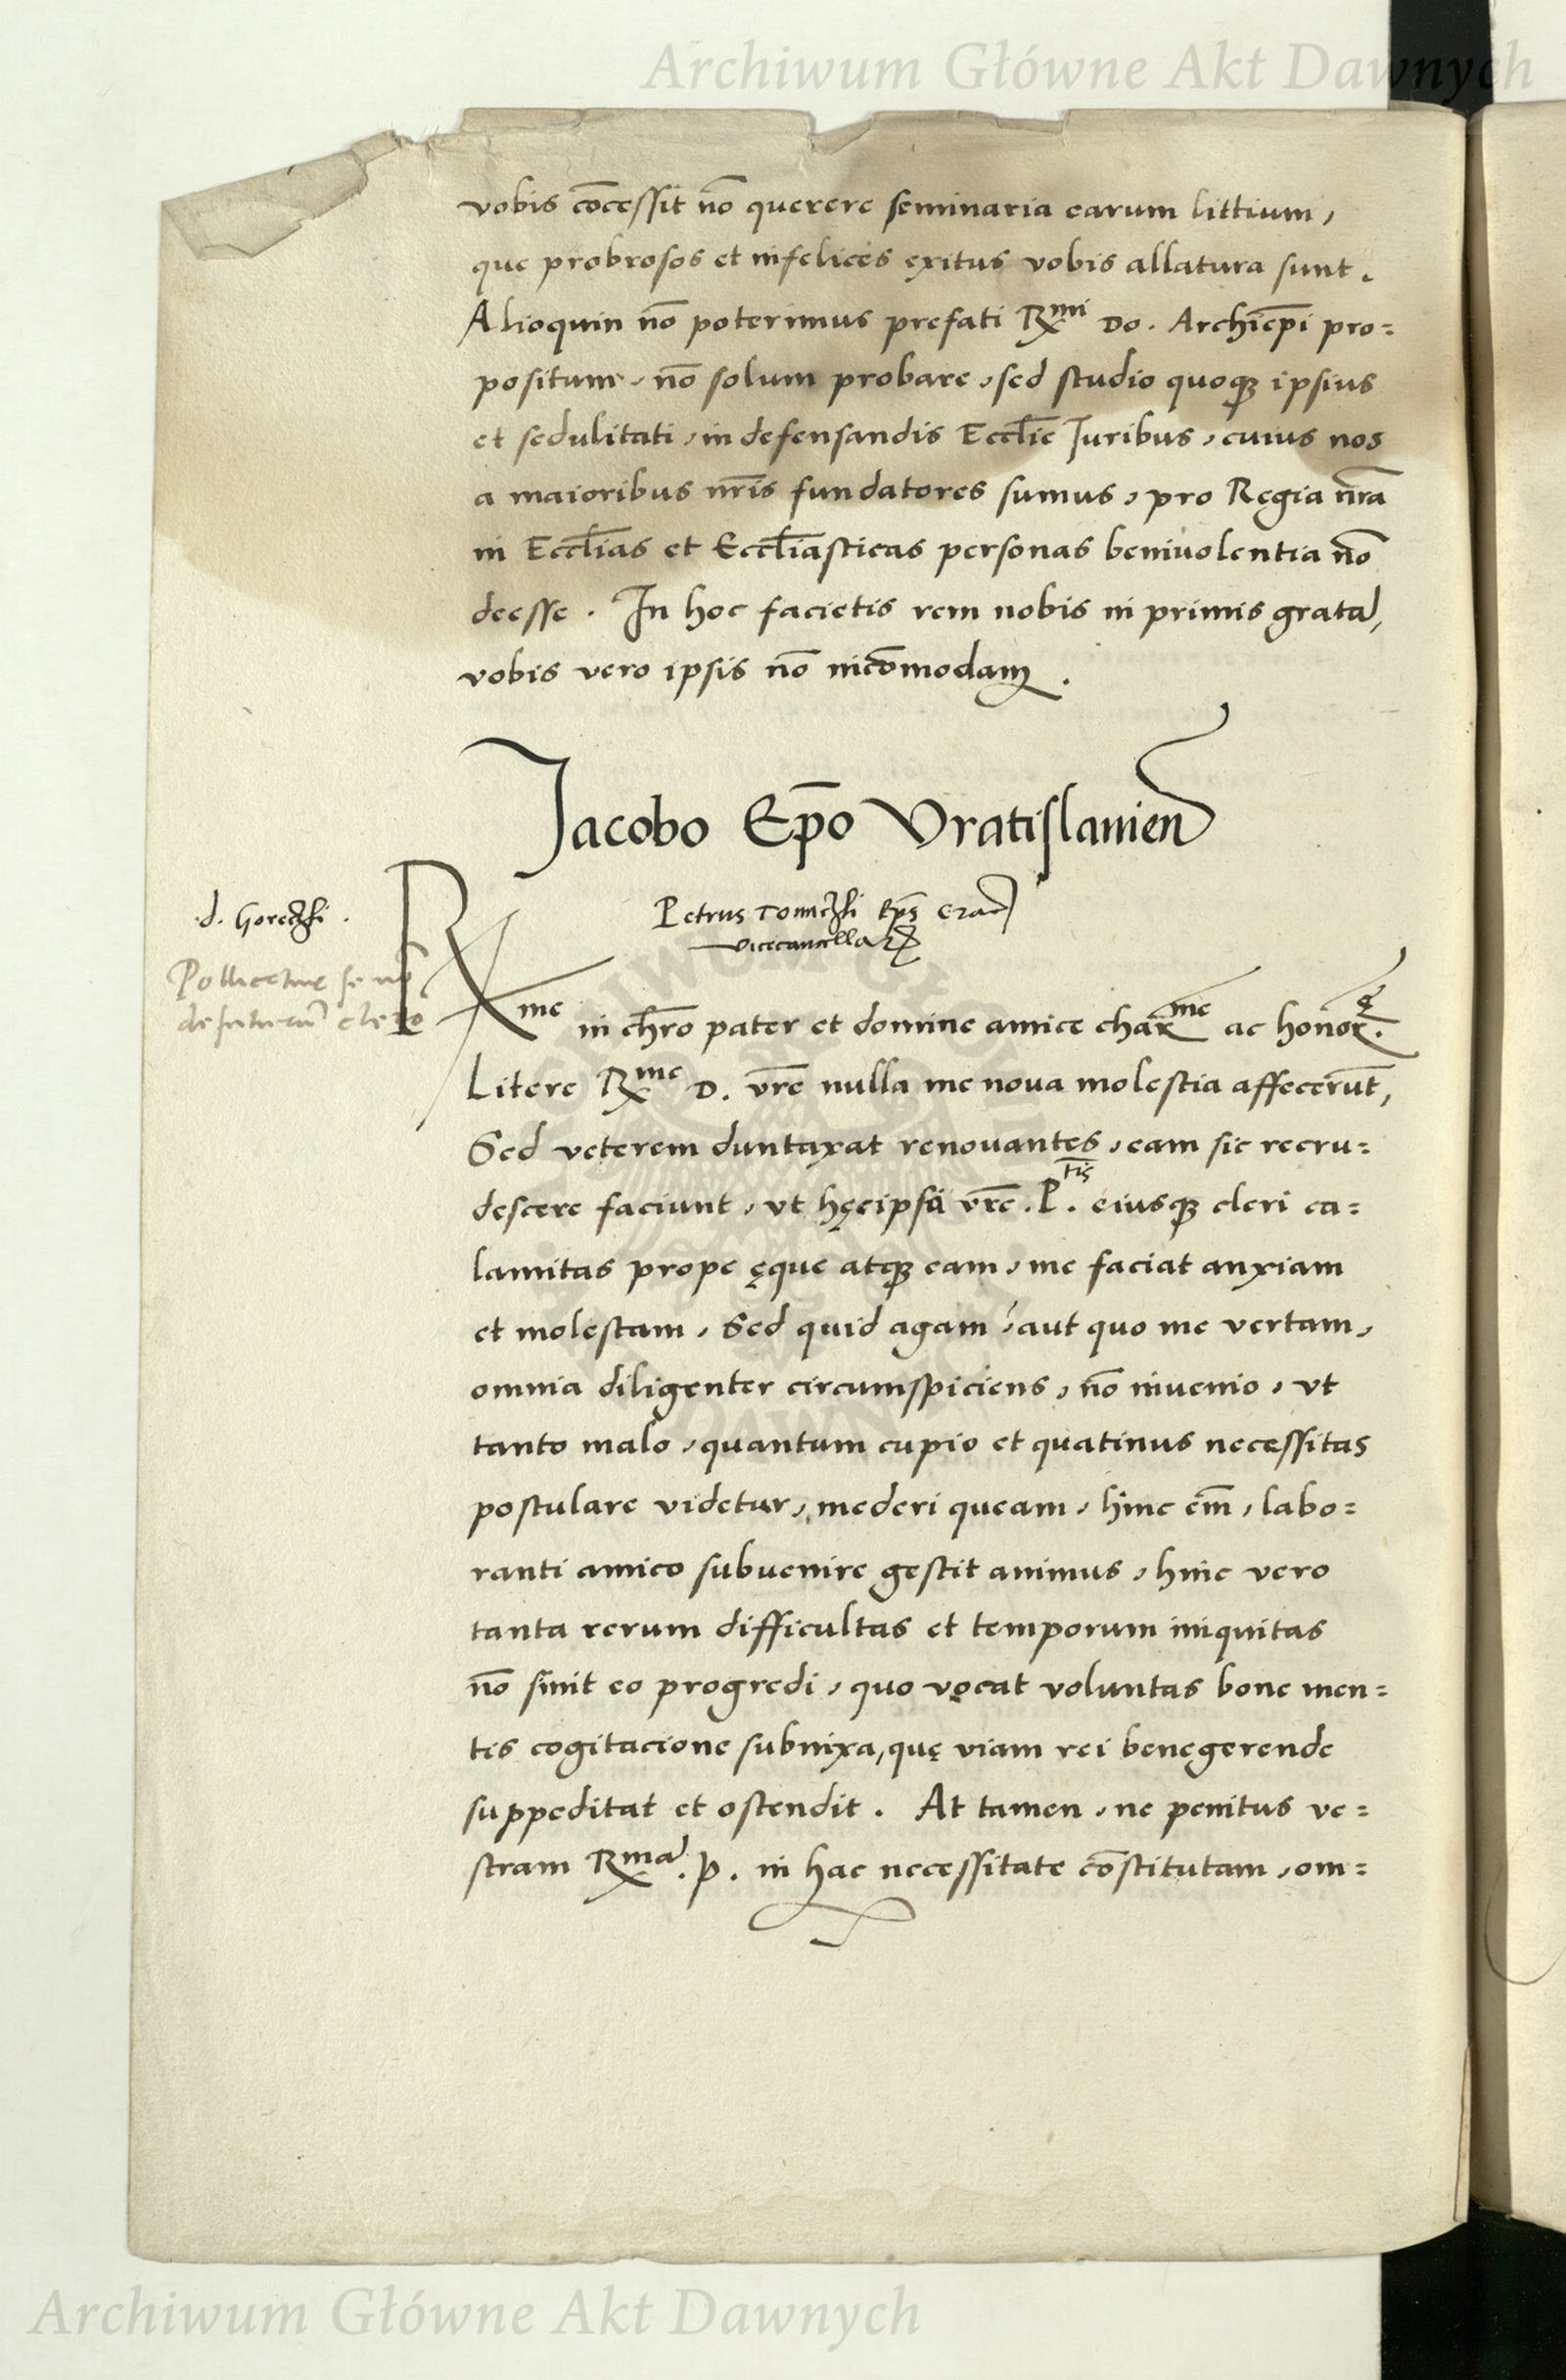 Archiwum Główne Akt Dawnych
vobis cōcessit nō querere seminaria earum littium,
que probrosos et infelices ęxitus vobis allatura sunt.
Alioquin nō poterimus prefati Rmi Do. Archiepi pro=
positum, nō solum probare, sed studio quoqꝫ ipsius
et sedulitati, in defensandis Eccłie Juribus, cuius nos
a maioribus nr̄is fundatores sumus, pro Regia nr̄a
in Eccłias et Eccłiasticas personas beniuolentia nō
deesse. In hoc facietis rem nobis in primis grata,
vobis vero ipsis nō incōmodam.
Jacobo Ep̄o Vratislauien
Petrus Tomiczki Ep̄s Crac
vicecancellar
d. Goreczki.
Pollicetur se nō
defuturū clero
Rme in chr̄o pater et domine amice charme ac honor.
Litere Rme D. vr̄e nulla me noua molestia affecerūt,
Sed veterem duntaxat renouantes, eam sic recru=
descere faciunt, vt hęcipsa vr̄e. P.tis eiusqꝫ cleri ca=
lamitas prope ęque atqꝫ eam, me faciat anxiam
et molestam, Sed quid agam, aut quo me vertam,
omnia diligenter circumspiciens, nō inuenio, vt
tanto malo, quantum cupio et quatinus necessitas
postulare videtur, mederi queam, hinc em̄, labo=
ranti amico subuenire gestit animus, hinc vero
tanta rerum difficultas et temporum iniquitas
nō sinit eo progredi, quo vocat voluntas bone men=
tis cogitacione subnixa, quę viam rei benegerende
suppeditat et ostendit. At tamen, ne penitus ve=
stram Rma. p. in hac necessitate cōstitutam, om=
Archiwum Główne Akt Dawnych